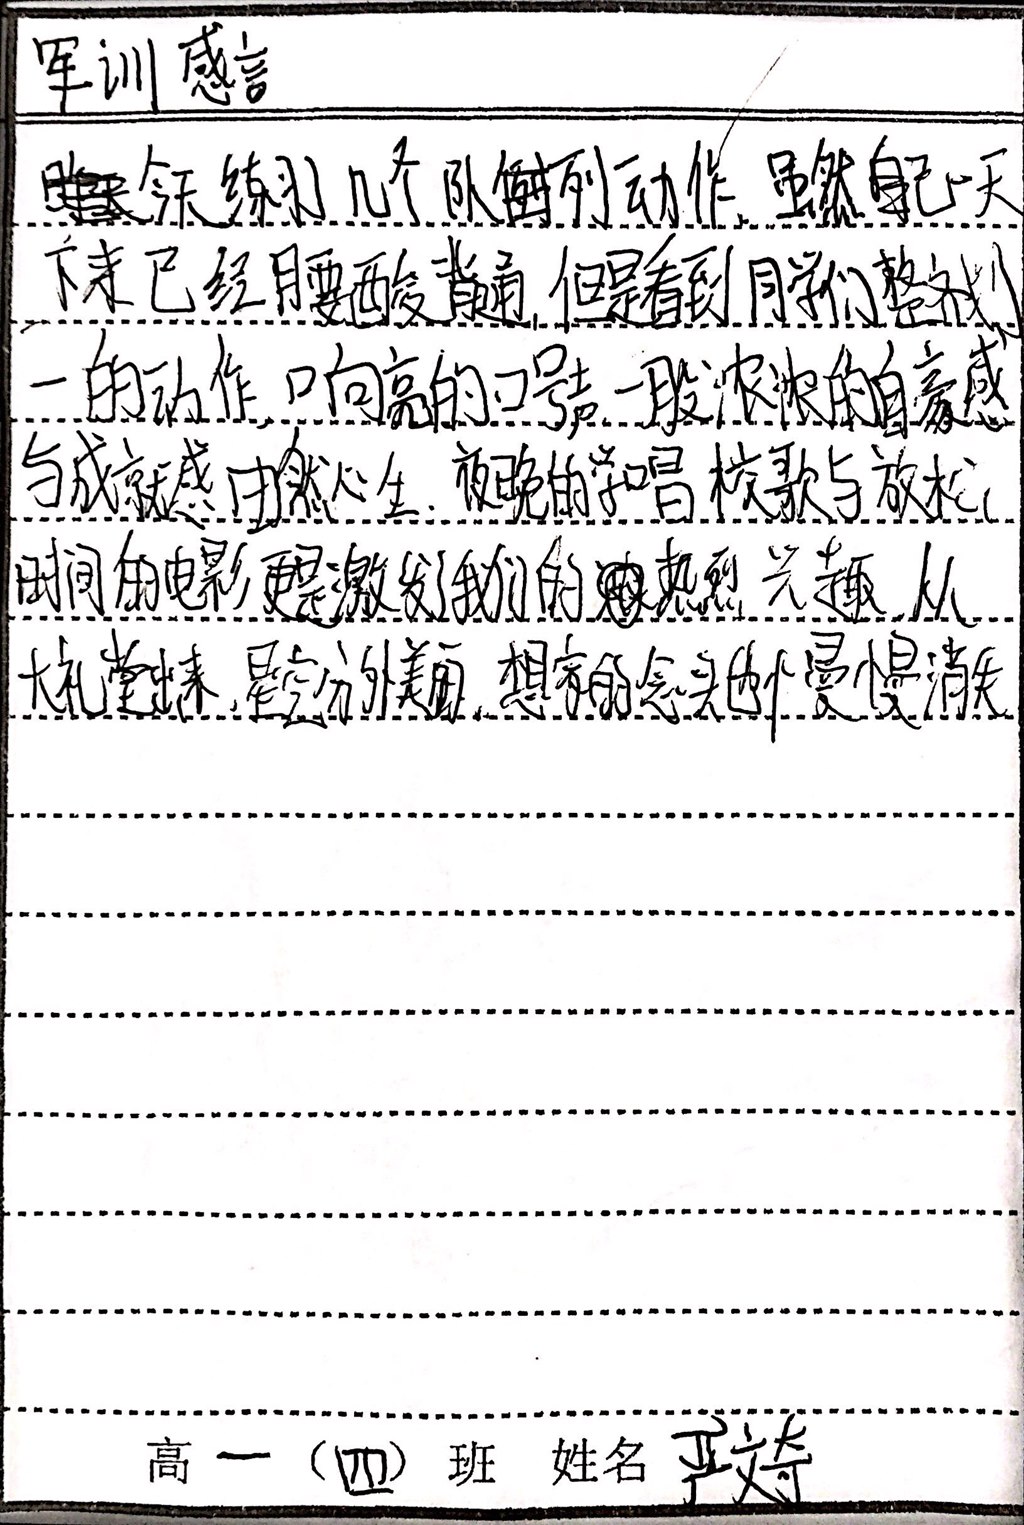 军训感言
今天练习几个队列动作,虽然自己一天
下来已经腰酸背痛,但是看到同学们整齐划
一的动作,响亮的口号声,一股浓浓的自豪感
与成就感由然心生.夜晚的学唱校歌与放松
时间的电影更是激发了我们的热烈兴趣,从
大礼堂出来,星空分外美丽,想家的念头也慢慢消失
高一(四)班 姓名 严文奇